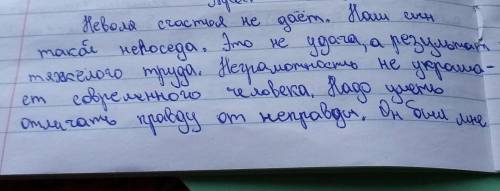 Неволя счастья не даёт. Наш сын
такой непоседа. Это не удача, а результат
тяжёлого труда. Неграмотность не украша-
ет современного человека. Надо уметь
отличать правду от неправды. Он был мне